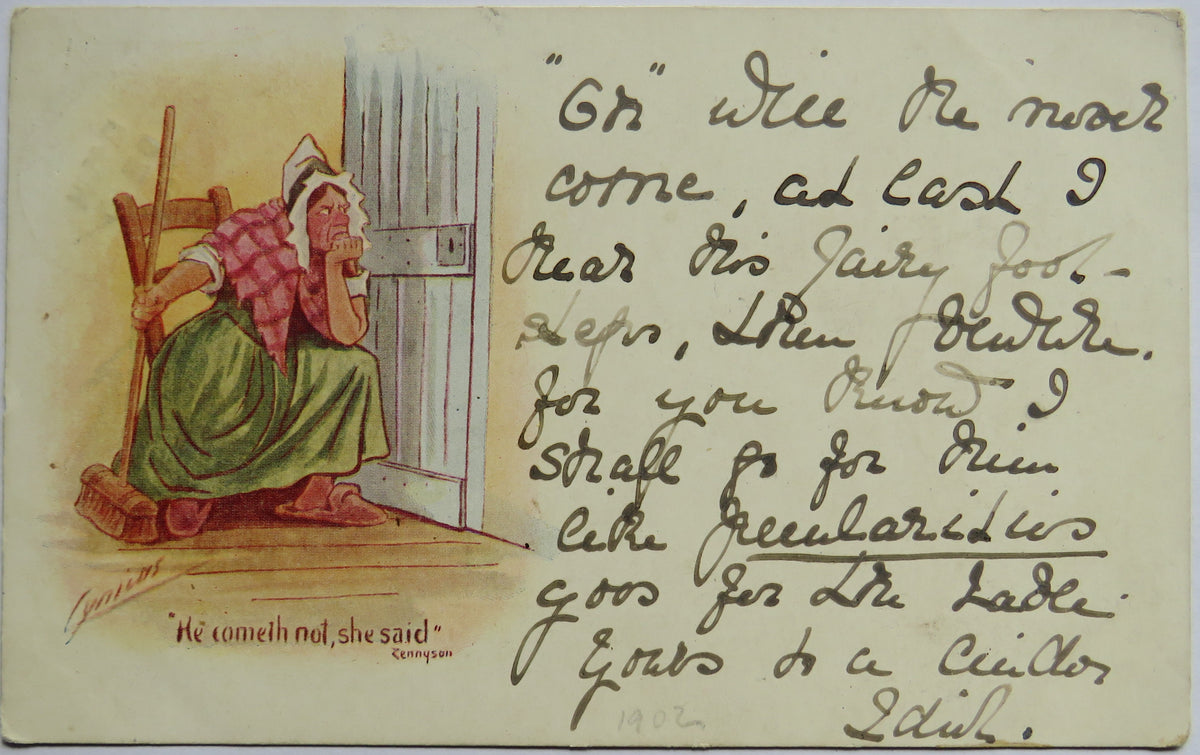 Cynicus
"He cometh not, she said"
Tennyson
"Oh" will he never
come, at last I
hear his fairy foot-
steps, then beware.
for you know I
shall go for him
like peculiarities
goes for the table
Yours to a cinder
Edith.
1902